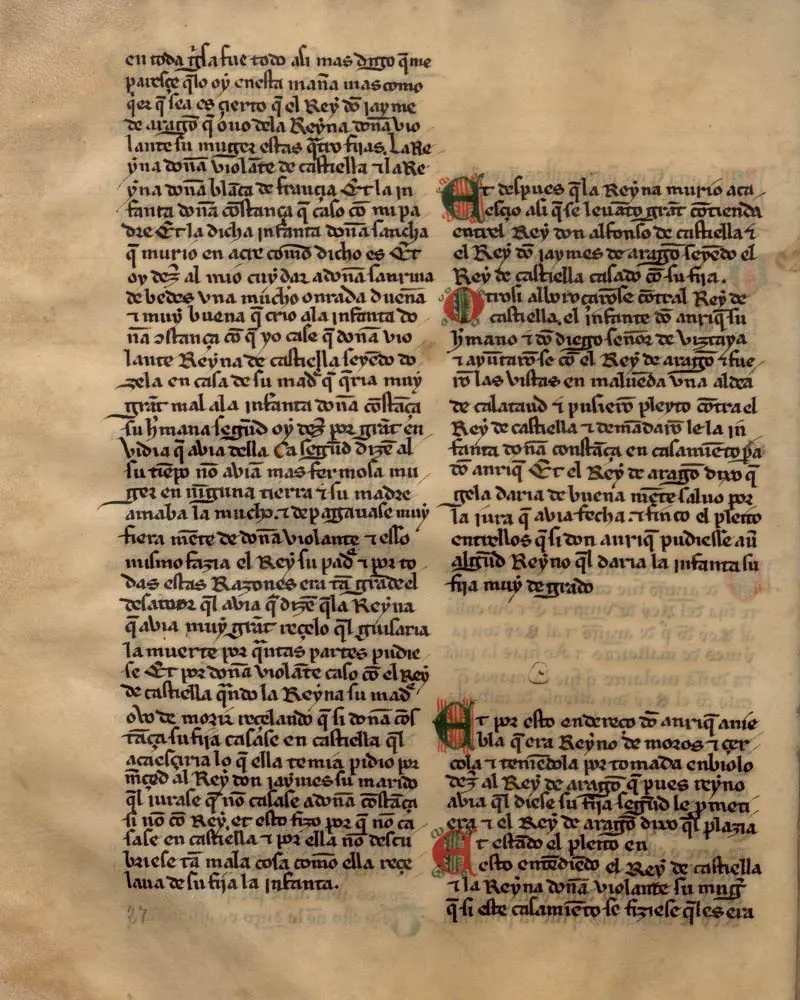 en toda g̃sa fue todo asi mas digo q̃ me
paresçe q̃lo oẏ enesta mañã mas como
q̃er q̃ sea es çierto q̃ el Reẏ dõ jaẏme
de aragõ q̃ ouo dela Reẏna doñã vio
lante su muger estas q̃tro fijas. La Re
ẏna doñã violãte de castiella ⁊ la Re
ẏna doñã blãca de françia Et la in
fanta doñã costança q̃ caso cõ mi pa
dre Et la dicha infanta doñã sancha
q̃ murio en acre comõ dicho es Et
oẏ dez̃ al mio cuẏdar a doñã
de bedes vna mucho onrada dueña
⁊ muẏ buena q̃ crio ala infanta do
ñã ↄstança cõ q̃ ẏo case q̃ doñã vio
lante Reẏna de castiella seẏẽdo dõ
zela en casa de su mad̃ q̃ q̃ria muẏ
grãt mal ala infanta doñã cõstãça
su h̃mana segũd oẏ dez̃ por grãt en
vidia q̃ avia della Ca segũd dizẽ al
su tiẽpo nõ aviã mas fermosa mu
ger en niguna tierra ⁊ su madre
amaba la mucho. ⁊ despagauase muẏ
fiera mẽte de doñã violante ⁊ esso
mismo fazia el Reẏ su pad̃ ⁊ por to
das estas Razones era tã grãde el
desamor q̃l avia q̃ dizẽ q̃la Reẏna
q̃ avia muẏ grãt reçelo q̃l guisaria
la muerte por q̃ntas partes pudie
se Et por doñã violãte caso cõ el Reẏ
de castiella q̃ndo la Reẏna su mad̃
ovo de morir recelando q̃ si doñã cõs
tãça su fija casase en castiella q̃l
acaesçria lo q̃ ella temia pidio por
mc̃ed al Reẏ don jaẏmes su marido
q̃l iurase q̃ nõ casase a doñã cõstãça
si nõ cõ Reẏ, et esto fizo por q̃ nõ ca
sase en castiella ⁊ por ella nõ descu
briese tã mala cosa comõ ella reçe
laua de su fija la infanta.
27
Et despues q̃ la Reẏna murio aca
esçio asi q̃ se leuãto grãt cõtienda
entrel Reẏ don alfonso de castiella ⁊
el Reẏ dõ jaẏmes de aragõ seẏẽdo el
Reẏ de castiella casado cõ su fija.
Otrosi alboroçarõse cõtral Reẏ de
castiella, el infante dõ anriq̃ su
h̃mano ⁊ dõ diego señor de vizcaẏa
⁊ aẏũtarõ se cõ el Reẏ de aragõ ⁊ fue
rõ las vistas en malueda vna aldea
de calataud ⁊ pusierõ pleẏto cõtra el
Reẏ de castiella ⁊ demãdarõ le la in
fanta doñã constãça en casamiẽto pa
dõ anriq̃ Et el Reẏ de aragõ dixo q̃
gela daria de buena mẽte saluo por
la iura q̃ avia fecha. ⁊ finco el pleito
entrellos q̃ si don anriq̃ pudiesse auer
algũd Reẏno q̃l daria la infanta su
fija muẏ de grado
Et por esto endereço dõ anriq̃ a nie
bla q̃ era Reẏno de moros ⁊ çer
cola ⁊ teniẽdola por tomada enbiolo
dez̃ al Reẏ de aragõ q̃ pues reẏno
avia q̃l diese su fija segũd le p̃meti
era ⁊ el Reẏ de aragõ dixo q̃l plazia
Et estãdo el pleito en
esto entẽdiẽdo el Reẏ de castiella
⁊ la Reẏna doñã violante su mug̃
q̃ si este casamiẽto se fiziese q̃les era